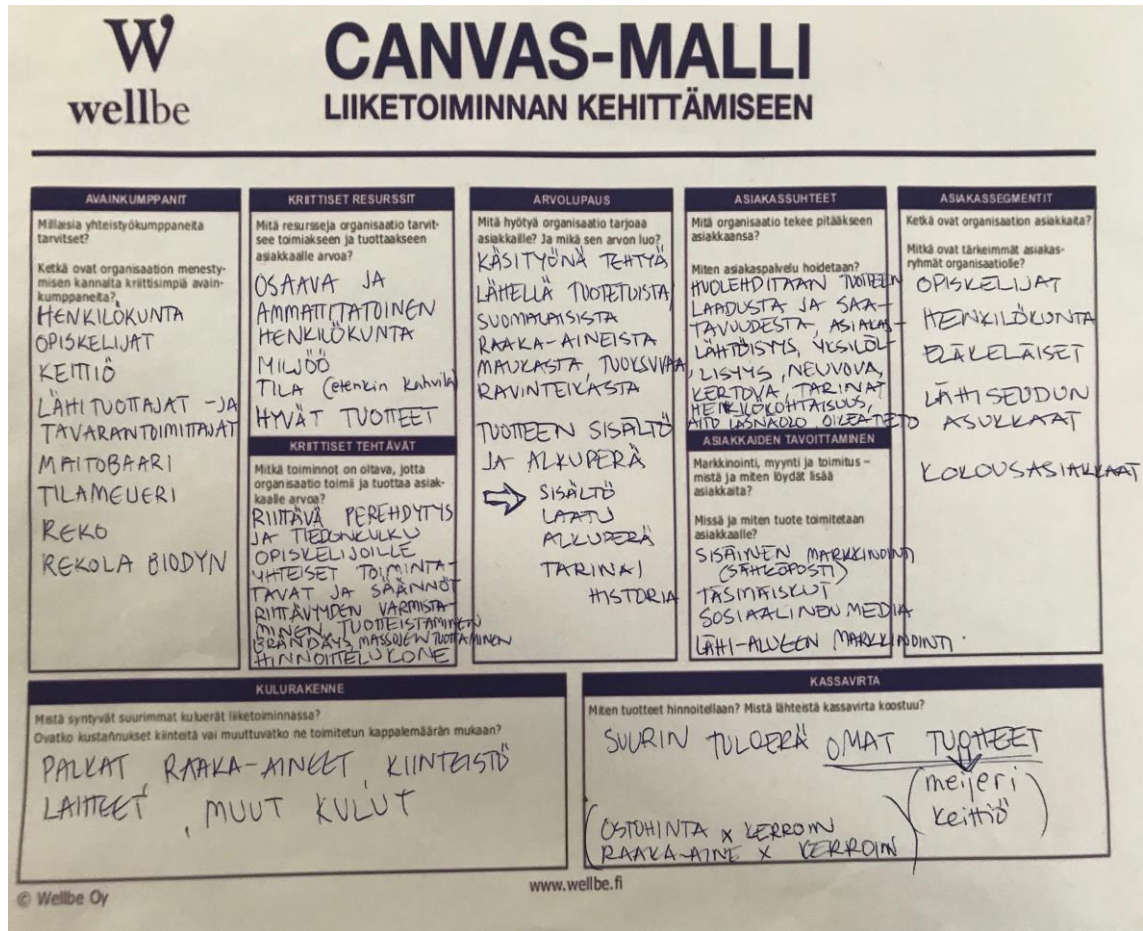 W
wellbe
CANVAS-MALLI
LIIKETOIMINNAN KEHITTÄMISEEN
AVAINKUMPPANIT
Millaisia yhteistyökumppaneita
tarvitset?
Ketkä ovat organisaation menesty-
misen kannalta kriittisimpiä avain-
kumppaneita?
HENKILÖKUNTA
OPISKELIJAT
KEITTIÖ
LÄHITUOTTAJAT -JA
TAVARANTOIMITTAJAT
MAITOBAARI
TILAMEIJERI
REKO
REKOLA BIODYN
KRIITTISET RESURSSIT
Mitä resursseja organisaatio tarvit-
see toimiakseen ja tuottaakseen
asiakkaalle arvoa?
OSAAVA JA
AMMATTITATOINEN
HENKILÖKUNTA
MILJÖÖ
TILA (etenkin kahvila)
HYVÄT TUOTTEET
KRIITTISET TEHTÄVÄT
Mitkä toiminnot on oltava, jotta
organisaatio toimii ja tuottaa asiak-
kaalle arvoa?
RIITTÄVÄ PEREHDYTYS
JA TIEDONKULKU
OPISKELIJOILLE
YHTEISET TOIMINTA-
TAVAT JA SÄÄNNÖT
RIITTÄVYYDEN VARMISTA-
MINEN, TUOTTEISTAMINEN
BRÄNDÄYS, MASSOJEN TUOTTAMINEN
HINNOITTELUKONE
ARVOLUPAUS
Mitä hyötyä organisaatio tarjoaa
asiakkaille? Ja mikä sen arvon luo?
KÄSITYÖNÄ TEHTYÄ
LÄHELLÄ TUOTETUISTA
SUOMALAISISTA
RAAKA-AINEISTA
MAUKASTA, TUOKSUVAA
RAVINTEIKASTA
TUOTTEEN SISÄLTÖ
JA ALKUPERÄ
SISÄLTÖ
LAATU
ALKUPERÄ
TARINA/
HISTORIA
ASIAKASSUHTEET
Mitä organisaatio tekee pitääkseen
asiakkaansa?
Miten asiakaspalvelu hoidetaan?
HUOLEHDITAAN TUOTTEEN
LAADUSTA JA SAA-
TAVUUDESTA, ASIAKAS-
LÄHTÖISYYS, YKSILÖL-
LISYYS, NEUVOVA,
KERTOVA, TARINAT
HENKILÖKOHTAISUUS,
AITO LÄSNÄOLO OIKEA TIETO
ASIAKKAIDEN TAVOITTAMINEN
Markkinointi, myynti ja toimitus –
mistä ja miten löydät lisää
asiakkaita?
Missä ja miten tuote toimitetaan
asiakkaalle?
SISÄINEN MARKKINOINTI
(SÄHKÖPOSTI)
TÄSMÄISKUT
SOSIAALINEN MEDIA
LÄHI-ALUEEN MARKKINOINTI.
ASIAKASSEGMENTIT
Ketkä ovat organisaation asiakkaita?
Mitkä ovat tärkeimmät asiakas-
ryhmät organisaatiolle?
OPISKELIJAT
HENKILÖKUNTA
ELÄKELÄISET
LÄHISEUDUN
ASUKKAAT
KOKOUSASIAKKAAT
KULURAKENNE
Mistä syntyvät suurimmat kuluerät liiketoiminnassa?
Ovatko kustannukset kiinteitä vai muuttuvatko ne toimitetun kappalemäärän mukaan?
PALKAT, RAAKA-AINEET, KIINTEISTÖ
LAITTEET, MUUT KULUT
KASSAVIRTA
Miten tuotteet hinnoitellaan? Mistä lähteistä kassavirta koostuu?
SUURIN TULOERÄ OMAT TUOTTEET
(meijeri
keittiö)
(OSTOHINTA x KERROIN
RAAKA-AINE x KERROIN)
© Wellbe Oy
www.wellbe.fi